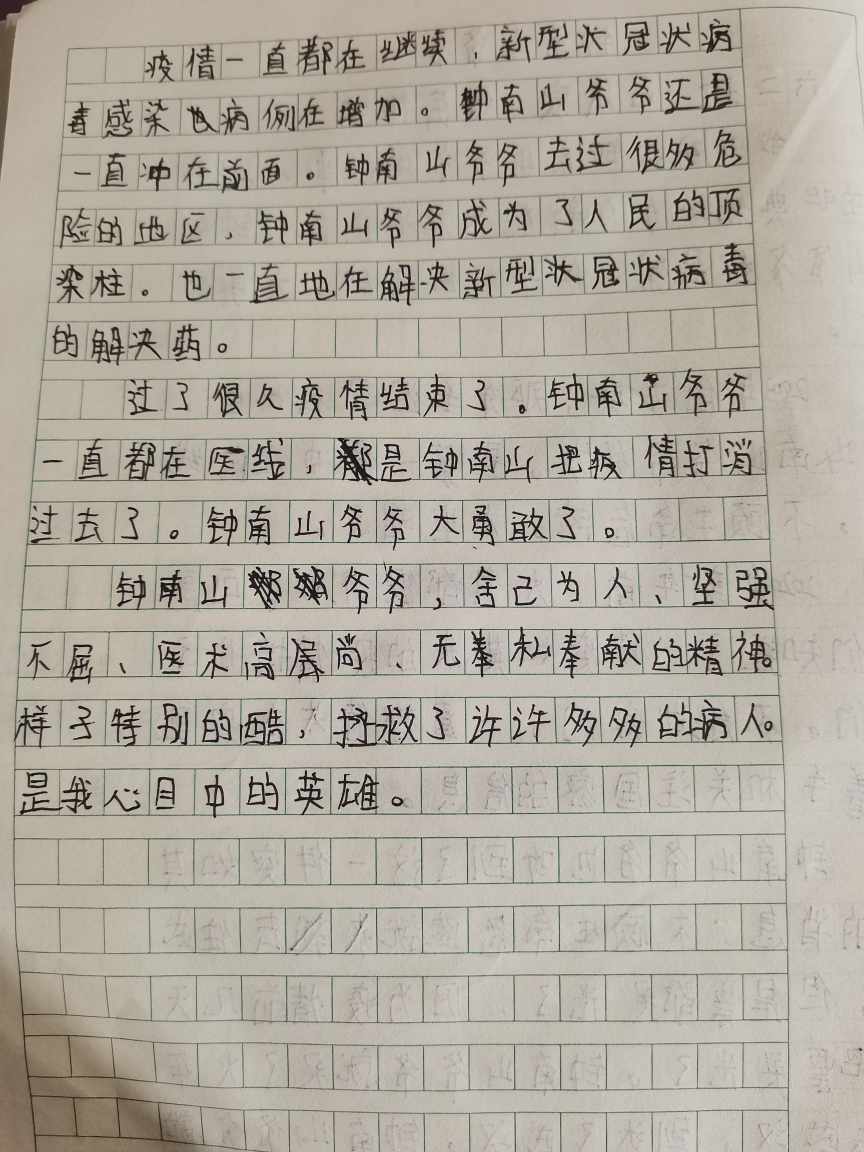 疫情一直都在继续，新型状冠状病
毒感染也病例在增加。钟南山爷爷还是
一直冲在前面。钟南山爷爷去过很多危
险的地区，钟南山爷爷成为了人民的顶
梁柱。也一直地在解决新型状冠状病毒
的解决药。
过了很久疫情结束了。钟南山爷爷
一直都在医线，是钟南山把疫情打消
过去了。钟南山爷爷大勇敢了。
钟南山爷爷，舍己为人、坚强
不屈、医术高层尚、无奉私奉献的精神。
样子特别的酷，拯救了许许多多的病人。
是我心目中的英雄。